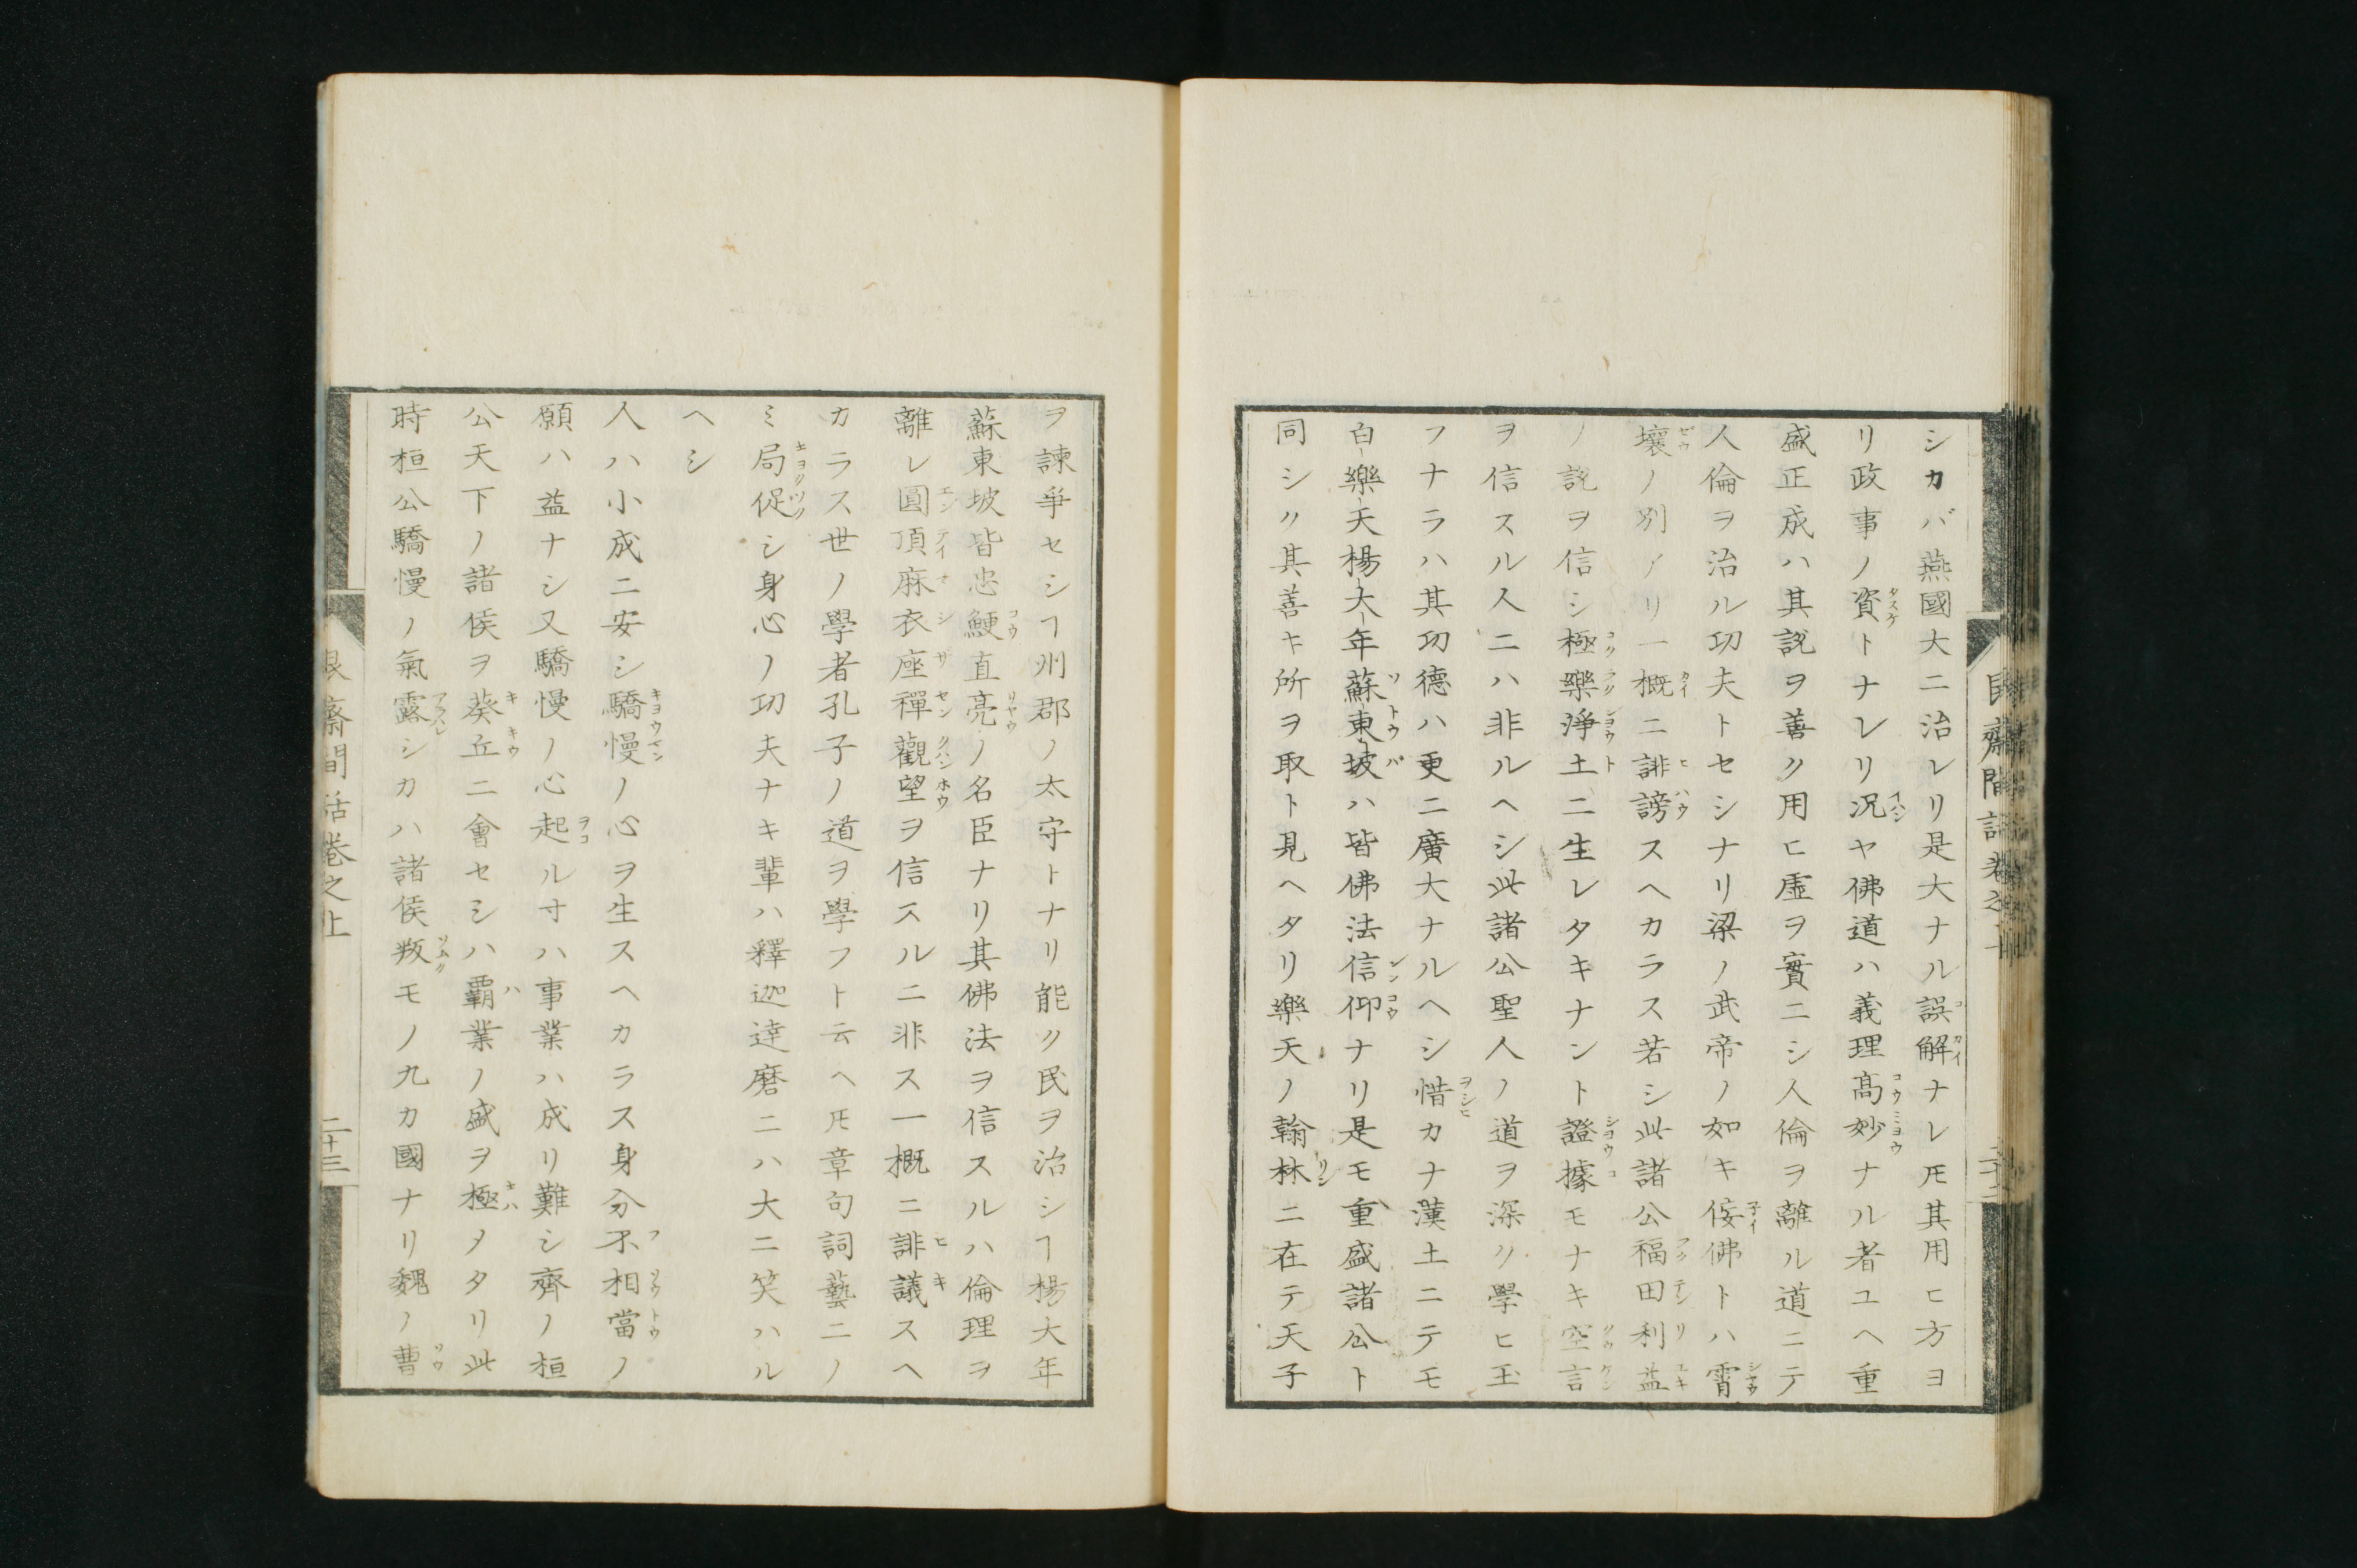 シカバ燕國大ニ治レリ是大ナル誤解ナレ𪜈其用ヒ方ヨ
リ政事ノ資トナレリ況ヤ佛道ハ義理高妙ナル者ユヘ重
盛正成ハ其説ヲ善ク用ヒ虚ヲ實ニシ人倫ヲ離ル道ニテ
人倫ヲ治ル功夫トセシナリ梁ノ武帝ノ如キ佞佛トハ霄
壤ノ別アリ一概ニ誹謗スヘカラス若シ此諸公福田利益
ノ説ヲ信シ極樂淨土ニ生レタキナント證據モナキ空言
ヲ信スル人ニハ非ルヘシ此諸公聖人ノ道ヲ深ク學ヒ玉
フナラハ其功德ハ更ニ廣大ナルヘシ惜カナ漢土ニテモ
白樂天楊大年蘇東坡ハ皆佛法信仰ナリ是モ重盛諸公ト
同シク其善キ所ヲ取ト見ヘタリ樂天ノ翰林ニ在テ天子
ヲ諫爭セシヿ州郡ノ太守トナリ能ク民ヲ治シヿ楊大年
蘇東坡皆忠鯁直亮ノ名臣ナリ其佛法ヲ信スルハ倫理ヲ
離レ圓頂麻衣座禪觀望ヲ信スルニ非ス一概ニ誹議スヘ
カラス世ノ學者孔子ノ道ヲ學フト云ヘ𪜈章句詞藝ニノ
ミ局促シ身心ノ功夫ナキ輩ハ釋迦達磨ニハ大ニ笑ハル
ヘシ
人ハ小成ニ安シ驕慢ノ心ヲ生スヘカラス身分不相當ノ
願ハ益ナシ又驕慢ノ心起ル寸ハ事業ハ成リ難シ齊ノ桓
公天下ノ諸侯ヲ葵丘ニ會セシハ覇業ノ盛ヲ極メタリ此
時桓公驕慢ノ氣露シカハ諸侯叛モノ九カ國ナリ魏ノ曹
艮齋間話卷之上
二十三